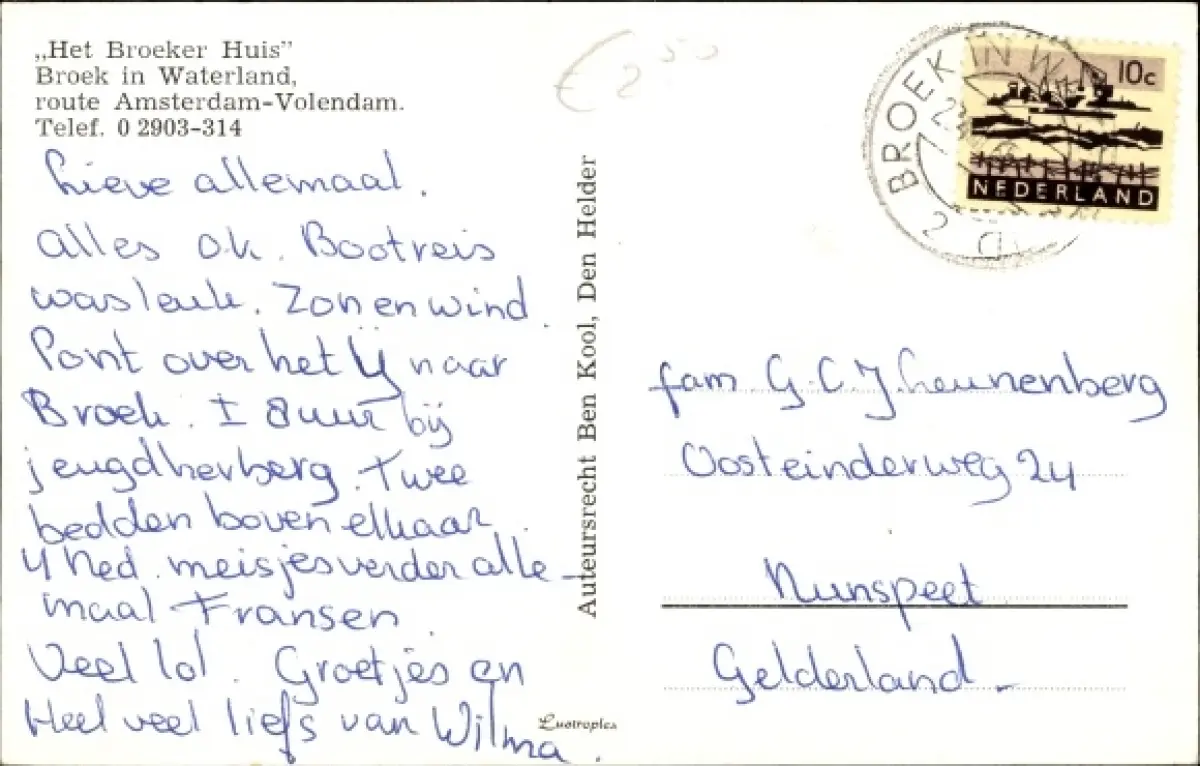 „Het Broeker Huis”
Broek in Waterland,
route Amsterdam-Volendam.
Telef. 0 2903-314
Lieve allemaal.
alles o.k. Bootreis
was leuk. Zon en wind.
Pont over het IJ naar
Broek. ± 8 uur bij
jeugdherberg. Twee
bedden boven elkaar.
4 Ned. meisjes verder alle-
maal Fransen.
Veel lol. Groetjes en
Heel veel liefs van Wilma.
Auteursrecht Ben Kool, Den Helder
Luotroplex
€ 2 50
BROEK IN W
10c
NEDERLAND
fam. G.C.J. Leunenberg
Oosteinderweg 24
Nunspeet
Gelderland